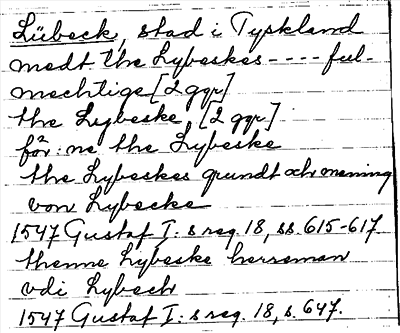 Lübeck, stad i Tyskland
medt the Lybeskes ---- ful-
mechtige [2 ggr]
the Lygbeske, [2 ggr]
för: ne the Lybeske
the Lybeskes grundt och mening
von Lybecke
1547 Gustaf I: s reg. 18, ss. 615-617
thenne Lybeske herreman
vdi Lybech
1547 Gustaf I: s reg. 18, s. 647.